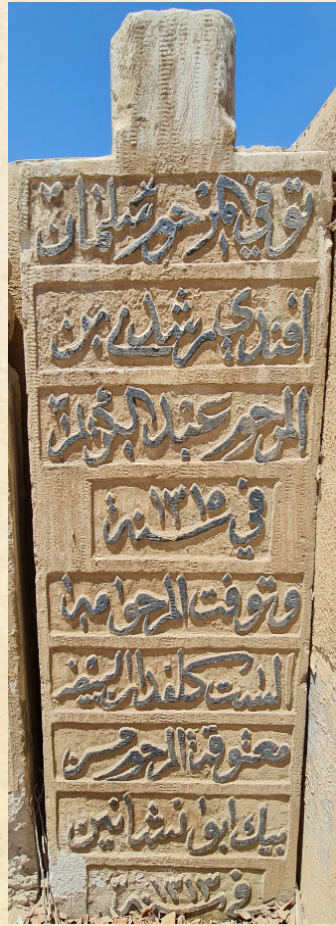 توفي المرحوم سليمان
افندي رشدي بن
المرحوم عبد الجواد
في سنة ١٣١٥
وتوفت المرحومه
الست كلفدان البيضه
معتوقة المرحوم حسن
بيك ابو نشانين
في سنة ١٣١٣